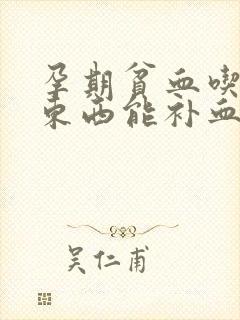 孕期贫血喫
东西能补血
吴仁甫